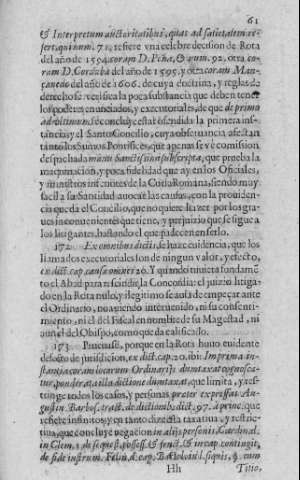 61
& Interpretum auctoritatibus, quas ad satietatem re-
fert, qui num. 71. refiere vna celebre decision de Rota
del año de 1594. coram D. Peña, & num. 92. otra co-
ram D. Cordoba del año de 1595. y otra coram Man-
çanedo del año de 1606. de cuya doctrina, y reglas de
derecho se verifica la poca substancia que deben tener
los poderes enunciados, y executoriales, de que de primo
ad vltimum se concluye està ofendida la primera ins-
tancia, y el Santo Concilio, cuya obseruancia afectan
tanto los Sumos Pontifices, que apenas se vè comission
despachada manu Sanctissimi subscripta, que prueba la
maquinacion, y poca fidelidad que ay en los Oficiales,
y ministros inferiores de la Curia Romana, siendo muy
facil a su Santidad auocar las causas, con la prouiden-
cia que dà el Concilio, que no quiere hazer por los gra-
ues inconuenientes que tiene, y perjuizio que se sigue a
los litigantes, hallando el que padecen en serlo.
172. Ex omnibus dictis, de haze euidencia, que los
llamados executoriales son de ningun valor, y efecto,
ex dict. cap. causam omnes 26. Y quando tuuiera fundamẽ-
to el Abad para rescindir la Concordia: el juizio litiga-
do en la Rota nulo, y ilegitimo se auia de empeçar ante
el Ordinario, no auiendo interuenido, ni su consenti-
miento, ni el del Fiscal en nombre de su Magestad, ni
aun el del Obispo, como queda calificado.
173. Pruebase, porque en la Rota huuo euidente
defecto de jurisdicion, ex dict. cap. 20. ibi: In prima in-
stantia coram locorum Ordinarijs dumtaxat cognosca-
tur, ponderata illa dictione dumtaxat, que limita, y res-
tringe todos los casos, y personas præter expressas. Au-
gustin. Barbos. tract. de dictionib. dict. 97. à princ. que
refiere infinitos, y en tanto dize està taxatiua, y restric-
tiua, que concluye negacion in alijs personis. Cardinal.
in Clem. 1. de sequest. possess. & fruct. & in cap. contingit,
de fide instrum. Felin. d. cap. Bartol. in l. si quis, §. cum
Hh Titio,